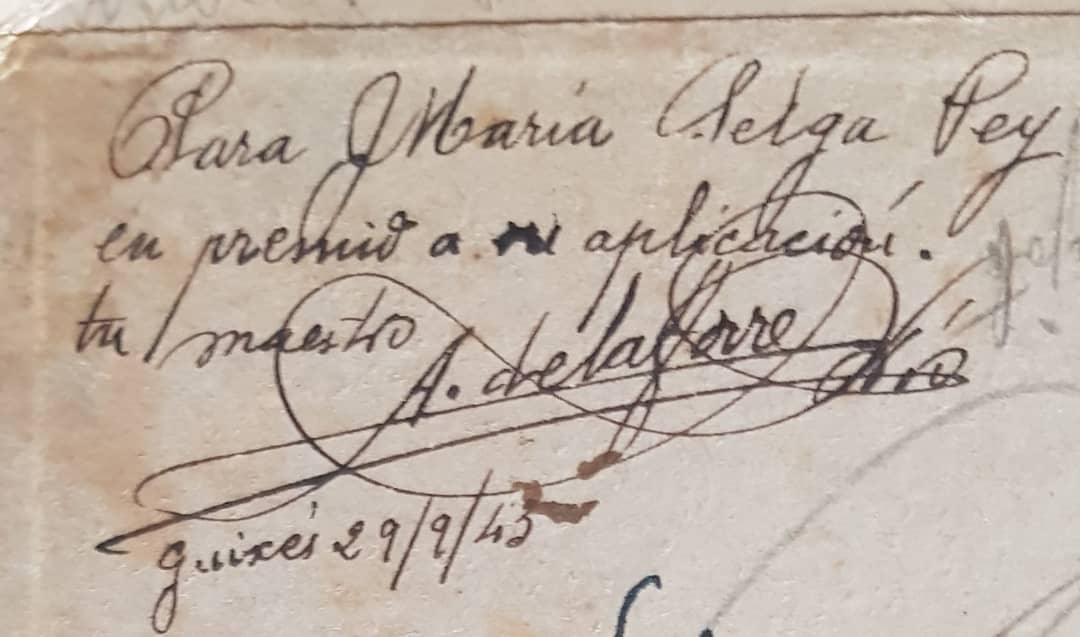 Para María Pelga Pey
en premio a su aplicación.
tu maestro
A. de la Torre
guixés 29/9/45